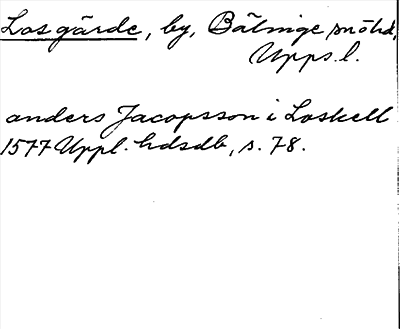 Losgärde, by, Bälinge snöhd,
Upps.l.
anders Jacopsson i Loskell
1577 Uppl. hdsdb, s. 78.